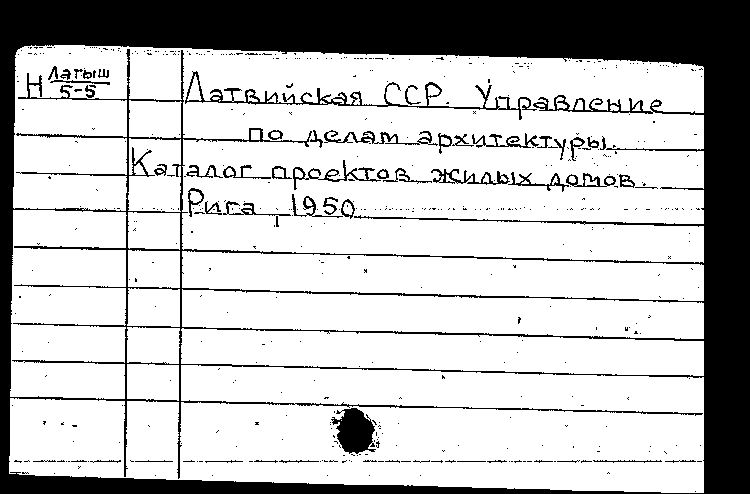 Н Латыш
5-5
Латвийская ССР. Управление
по делам архитектуры.
Каталог проектов жилых домов.
Рига, 1950